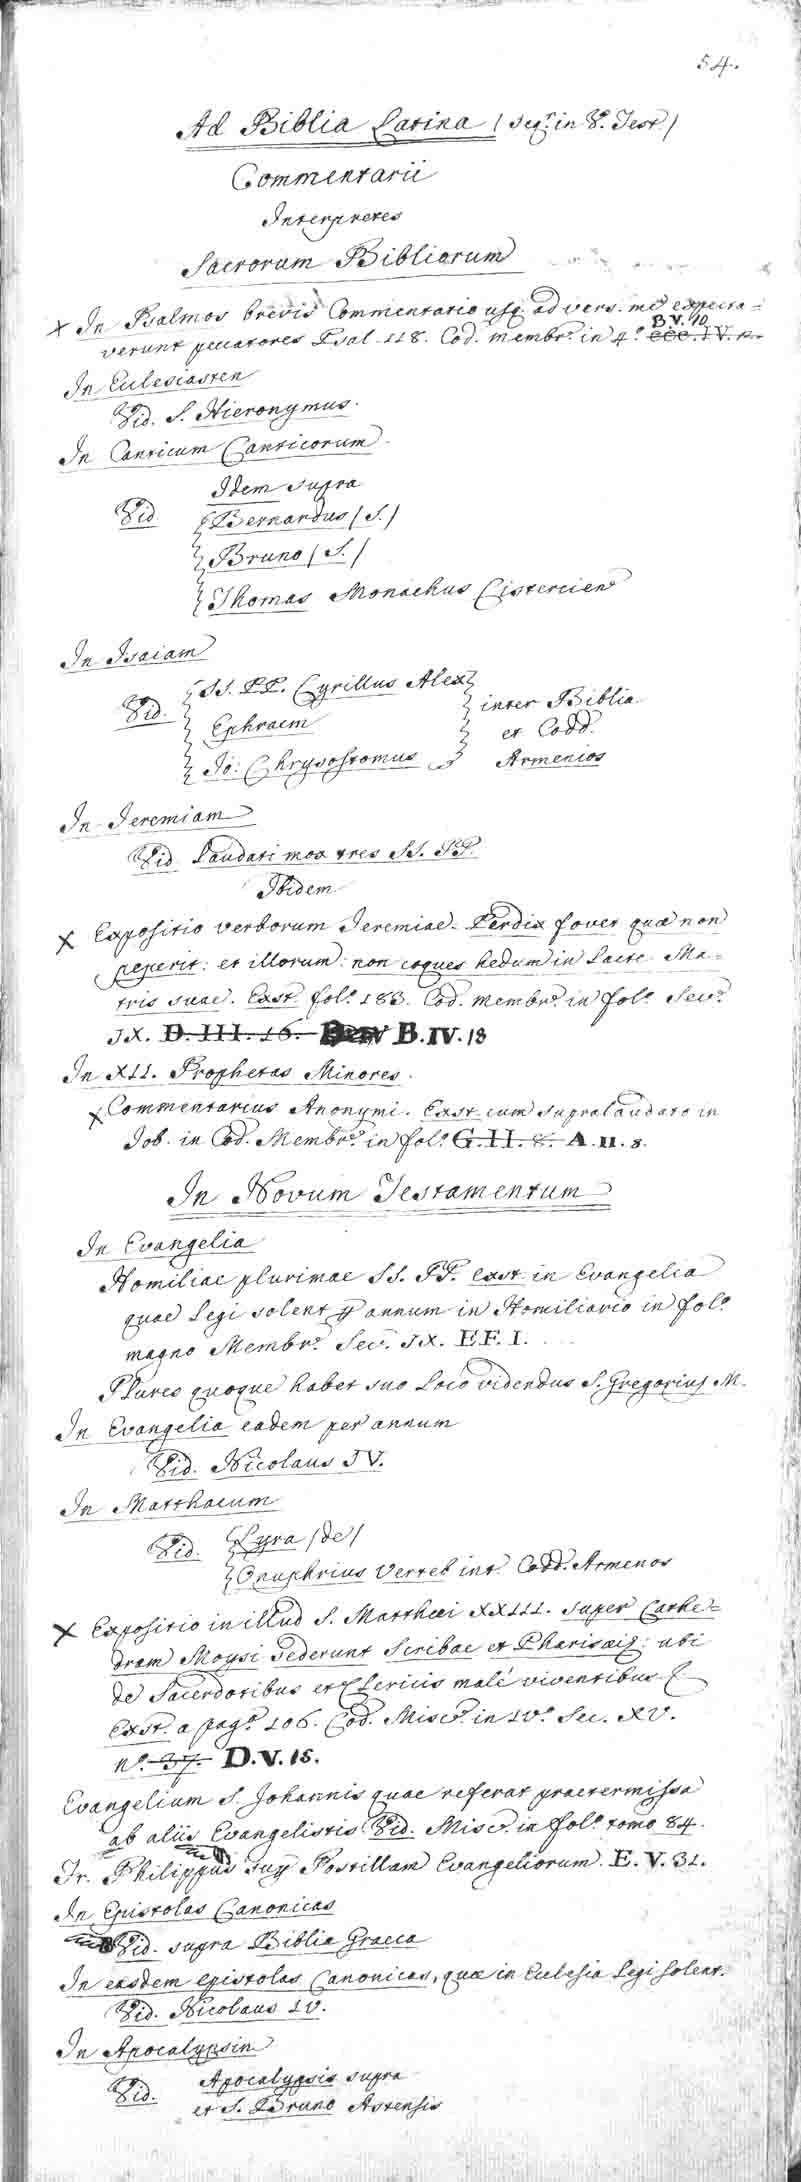 54.
Ad Biblia Latina / seqr. in V. Test. /
Commentarii
Interpretes
Sacrorum Bibliorum
x In Psalmos brevis Commentatio usq. ad vers. me expecta=
verunt peccatores Psal. 118. Cod. membr. in 4o. CCC. IV. 12. B.V. 10
In Ecclesiasten
Vid. S. Hieronymus.
In Canticum Canticorum
Idem supra
Vid. Bernardus / S. /
Bruno / S. /
Thomas Monachus Cistercien
In Isaiam
SS. PP. Cyrillus Alex
Vid. Ephraem inter Biblia et Codd. Armenios
Jo: Chrysostomus
In Jeremiam
Vid. Laudati mox tres SS. PP.
Ibidem
x Expositio verborum Jeremiae. Perdix fovet quae non
peperit: et illorum: non coques hedum in Lacte Ma=
tris suae. Exst. folo. 183. Cod. membro. in folo. Seco.
IX. D. III. 16. B. IV. 18
In XII. Prophetas Minores.
x Commentarius Anonymi. Exst. cum supralaudato in
Job. in Cod. Membro. in folo. G. H. 8. A. II. 8.
In Novum Testamentum
In Evangelia
Homiliae plurimae SS. PP. exst. in Evangelia
quae Legi solent p annum in Homiliario in folo.
magno Membro. Sec. IX. E F. I.
Plures quoque habet suo Loco videndus S. Gregorius M.
In Evangelia eadem per annum
Vid. Nicolaus IV.
In Matthaeum
Vid. Lyra / de /
Onuphrius Verteb int. Codd. Armenos
x Expositio in illud S. Matthaei XXIII. super Cathe=
dram Moysi sederunt Scribae et Pharisaei: ubi
de Sacerdotibus et Clericis malè viventibus
Exst. a pago. 106. Cod. Misco. in IVo. Sec. XV.
no. 37. D.V. 15.
Evangelium S. Johannis quae referat praetermissa
ab aliis Evangelistis Vid. Misco. in folo. tomo 84.
Fr. Philippus sup Postillam Evangeliorum. E.V. 31.
In Epistolas Canonicas
Vid. supra Biblia Graeca
In easdem epistolas Canonicas, quae in Ecclesia Legi solent.
Vid. Nicolaus IV.
In Apocalypsin
Vid. Apocalypsis supra
et S. Bruno Astensis